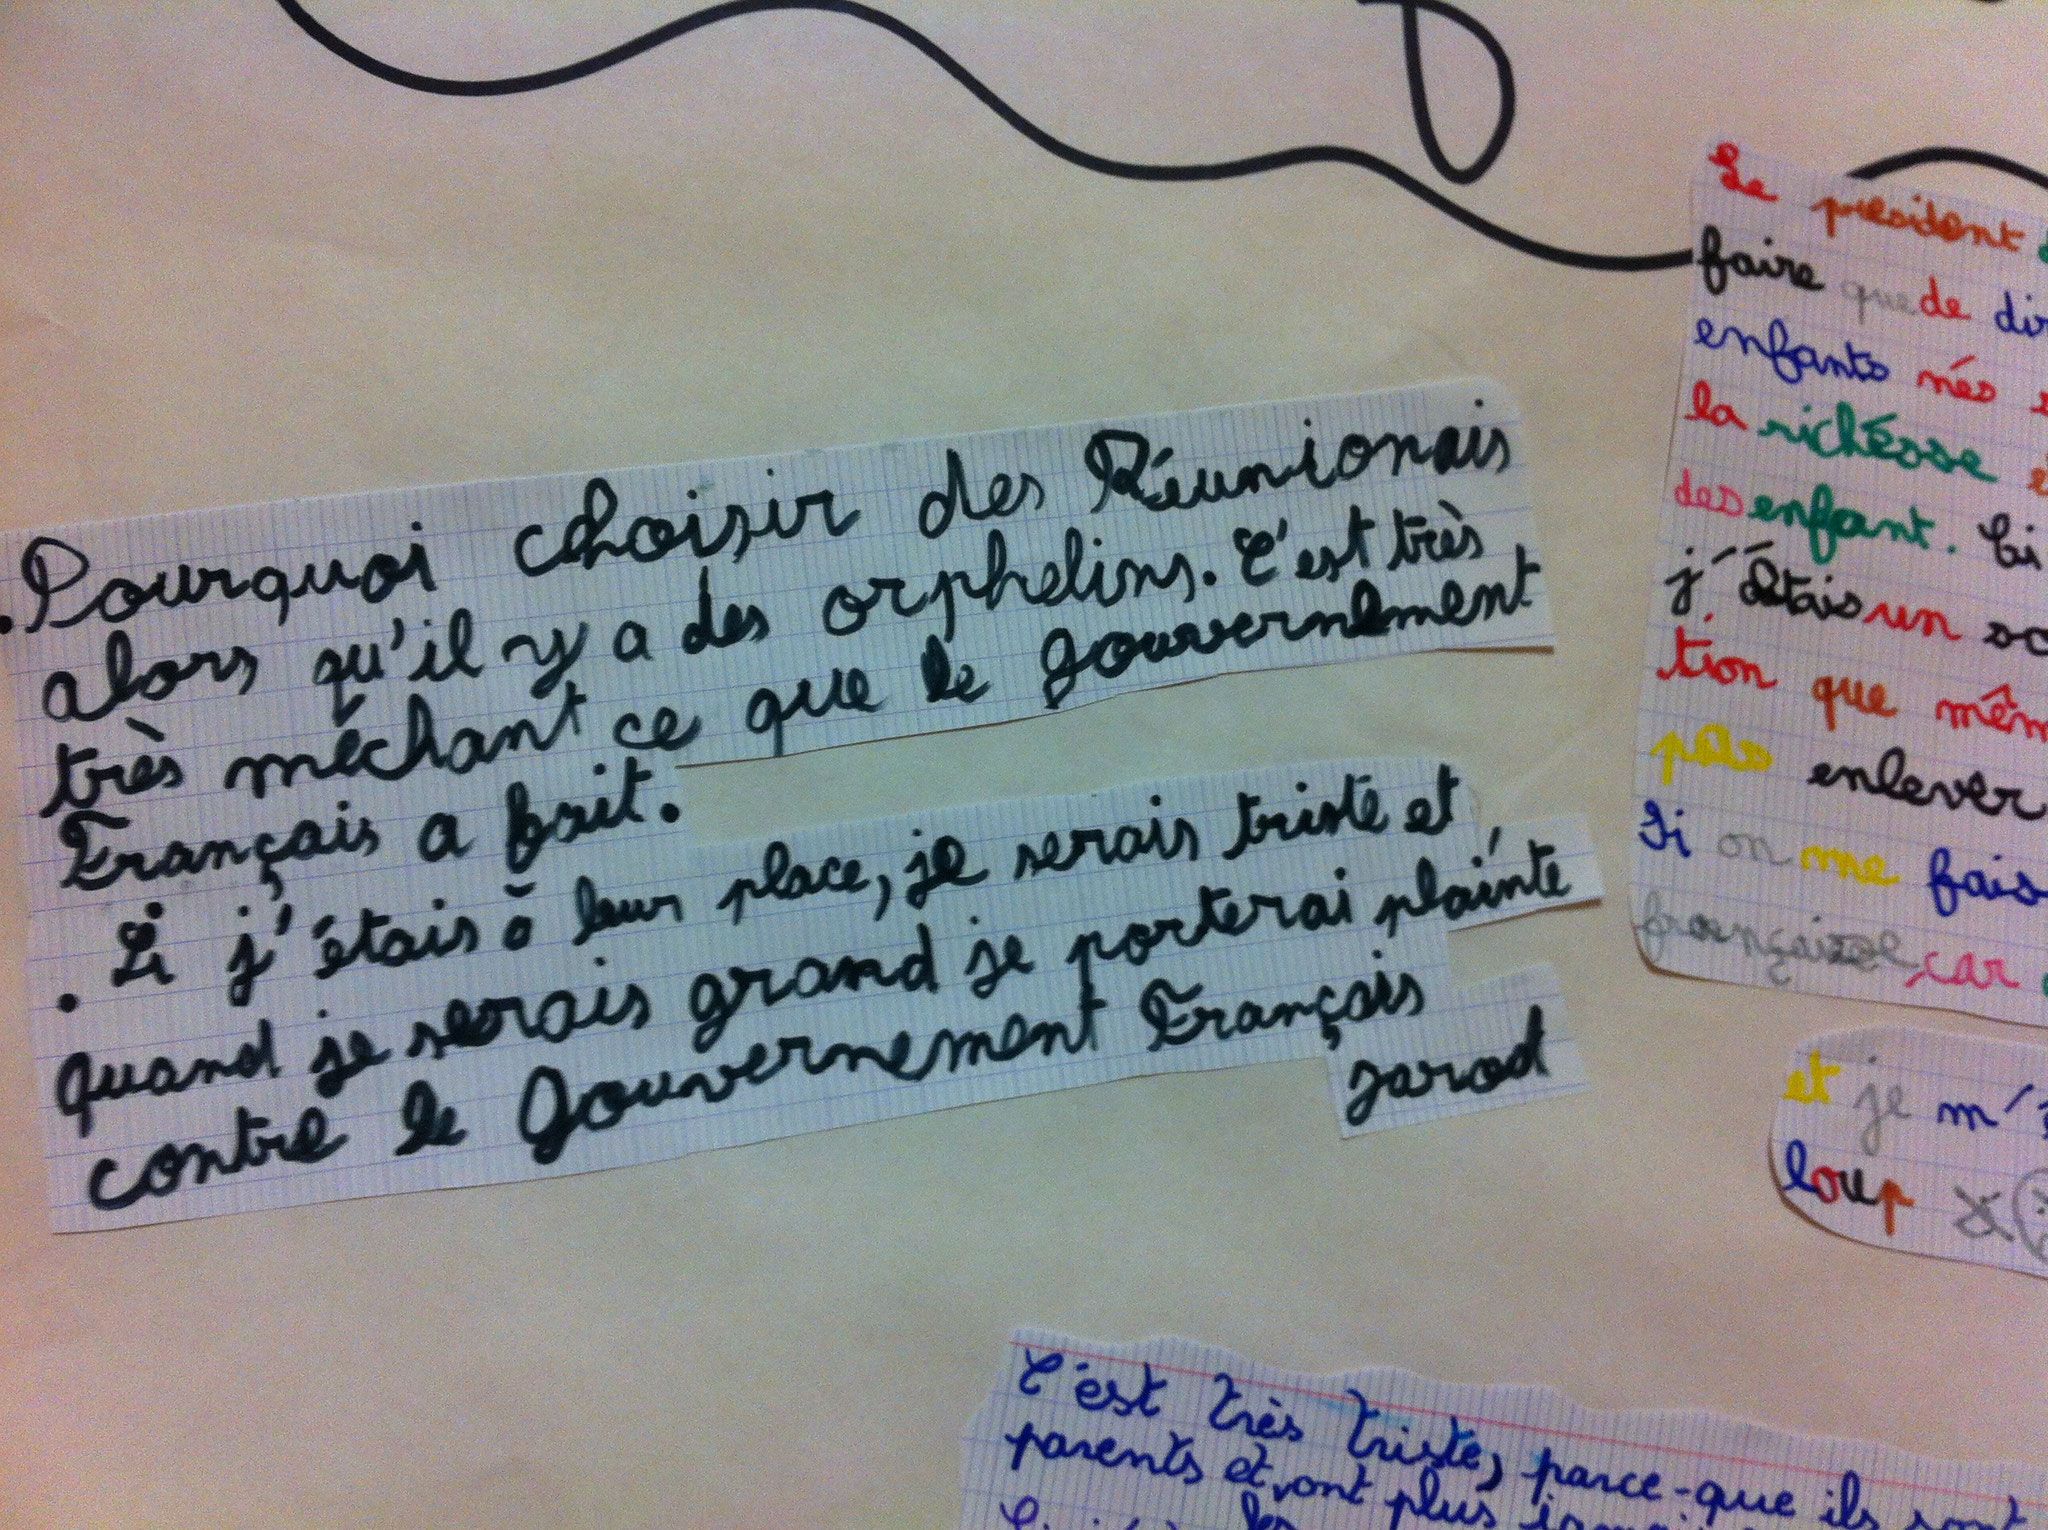 . Pourquoi choisir des Réunionais
alors qu'il y a des orphelins. C'est très,
très méchant ce que le gouvernement
Français a fait.
. Si j'étais à leur place, je serais triste et,
quand je serais grand je porterai plainte
contre le gouvernement Français
Jarod
Le president
faire que de dir
enfants nés
la richésse
des enfant. Si
j'étais un
tion que mêm
pas enlever
Si on me fais
française, car
et je m'é
loup
C'est très triste, parce-que ils sont
parents et vont plus